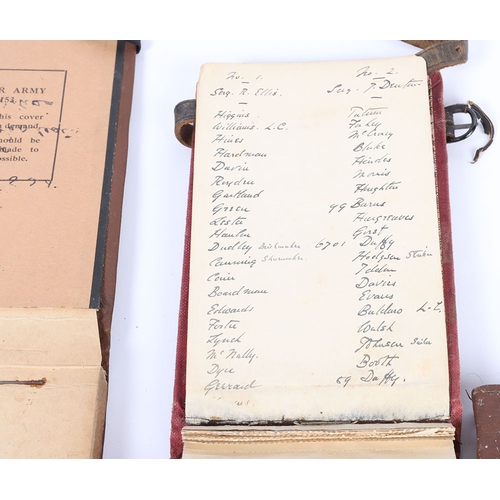 R ARMY
152
his cover
n demand.
ould be
ade to
ossible.
No. 1.
Serg. R. Ellis.
Higgins
Williams. L.C.
Hines
Hardman
Davin
Royden
Gartland
Green
Lester
Hanlon
Dudley
Canning Shoemaker
Coin
Boardman
Edwards
Foster
Lynch
Mc Nally.
Dyer
Gerrard
No. 2.
Serg. T. Denton
Tatum
Fahey
McCreary
Blake
Hendes
Morris
Houghton
99 Burns
Hargreaves
Gost
6701 Duffy
Hodgson
Tolden
Davies
Evans
Baldwin L-C,
Walsh
Johnson
Booth
59 Duffy.